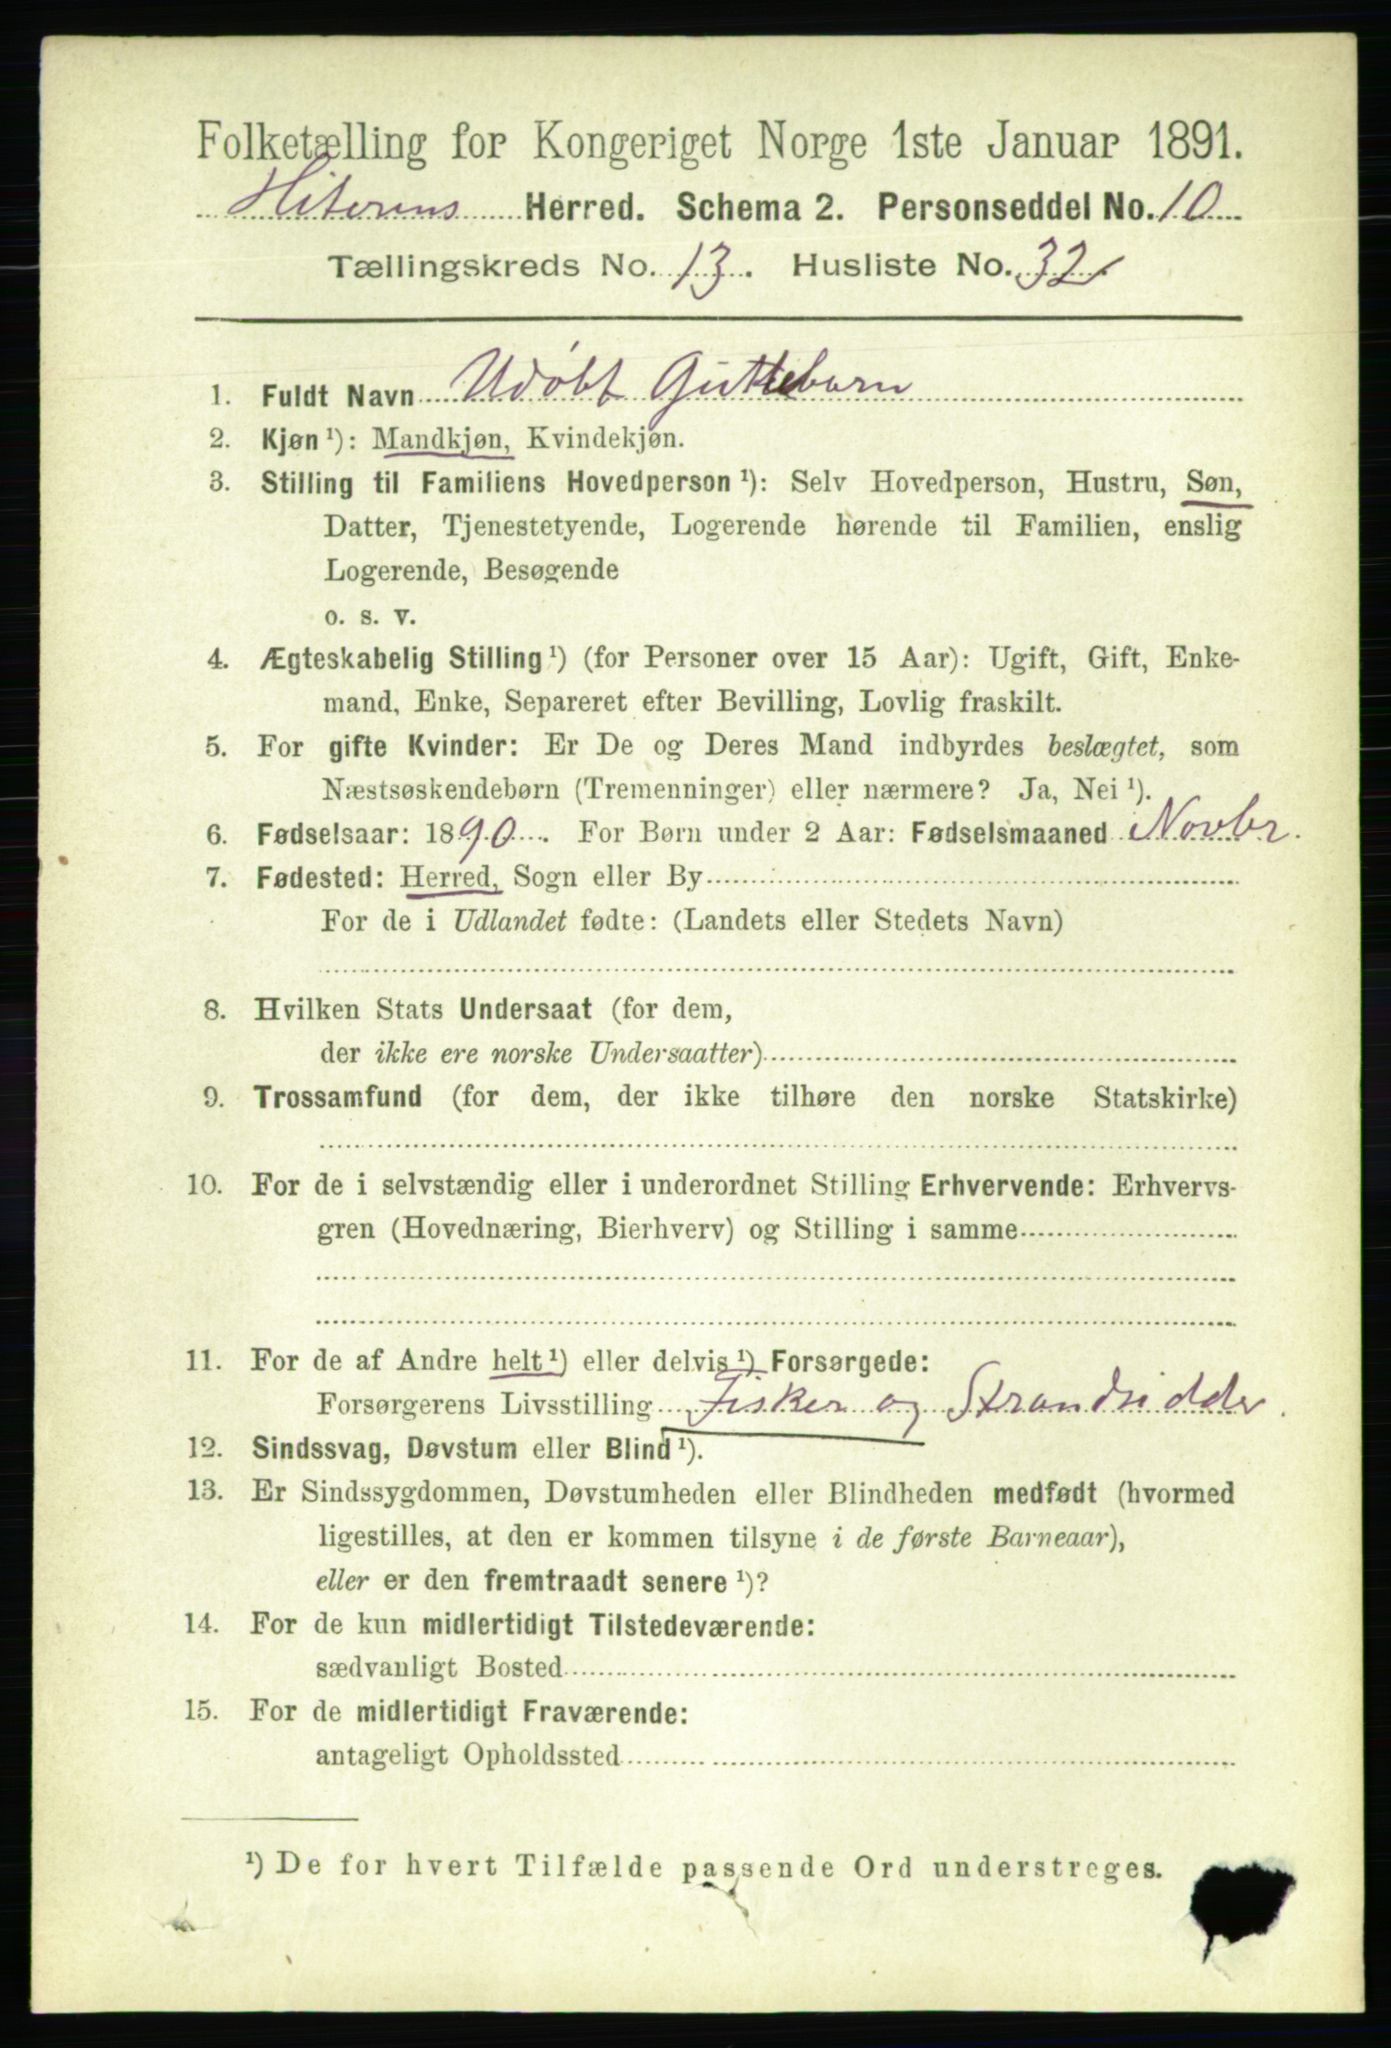 Folketælling for Kongeriget Norge 1ste Januar 1891.
Hiterens Herred. Schema 2. Personseddel No. 10
Tællingskreds No. 13. Husliste No. 32
1. Fuldt Navn Udøbt Guttebarn
2. Kjøn ¹): Mandkjøn, Kvindekjøn.
3. Stilling til Familiens Hovedperson ¹): Selv Hovedperson, Hustru, Søn,
Datter, Tjenestetyende, Logerende hørende til Familien, enslig
Logerende, Besøgende
o. s. v.
4. Ægteskabelig Stilling ¹) (for Personer over 15 Aar): Ugift, Gift, Enke-
mand, Enke, Separeret efter Bevilling, Lovlig fraskilt.
5. For gifte Kvinder: Er De og Deres Mand indbyrdes beslægtet, som
Næstsøskendebørn (Tremenninger) eller nærmere? Ja, Nei ¹).
6. Fødselsaar: 1890. For Børn under 2 Aar: Fødselsmaaned Novbr.
7. Fødested: Herred, Sogn eller By
For de i Udlandet fødte: (Landets eller Stedets Navn)
8. Hvilken Stats Undersaat (for dem,
der ikke ere norske Undersaatter)
9. Trossamfund (for dem, der ikke tilhøre den norske Statskirke)
10. For de i selvstændig eller i underordnet Stilling Erhvervende: Erhvervs-
gren (Hovednæring, Bierhverv) og Stilling i samme
11. For de af Andre helt ¹) eller delvis ¹) Forsørgede:
Forsørgerens Livsstilling Fisker og Strandsidder.
12. Sindssvag, Døvstum eller Blind ¹).
13. Er Sindssygdommen, Døvstumheden eller Blindheden medfødt (hvormed
ligestilles, at den er kommen tilsyne i de første Barneaar),
eller er den fremtraadt senere ¹)?
14. For de kun midlertidigt Tilstedeværende:
sædvanligt Bosted
15. For de midlertidigt Fraværende:
antageligt Opholdssted
¹) De for hvert Tilfælde passende Ord understreges.